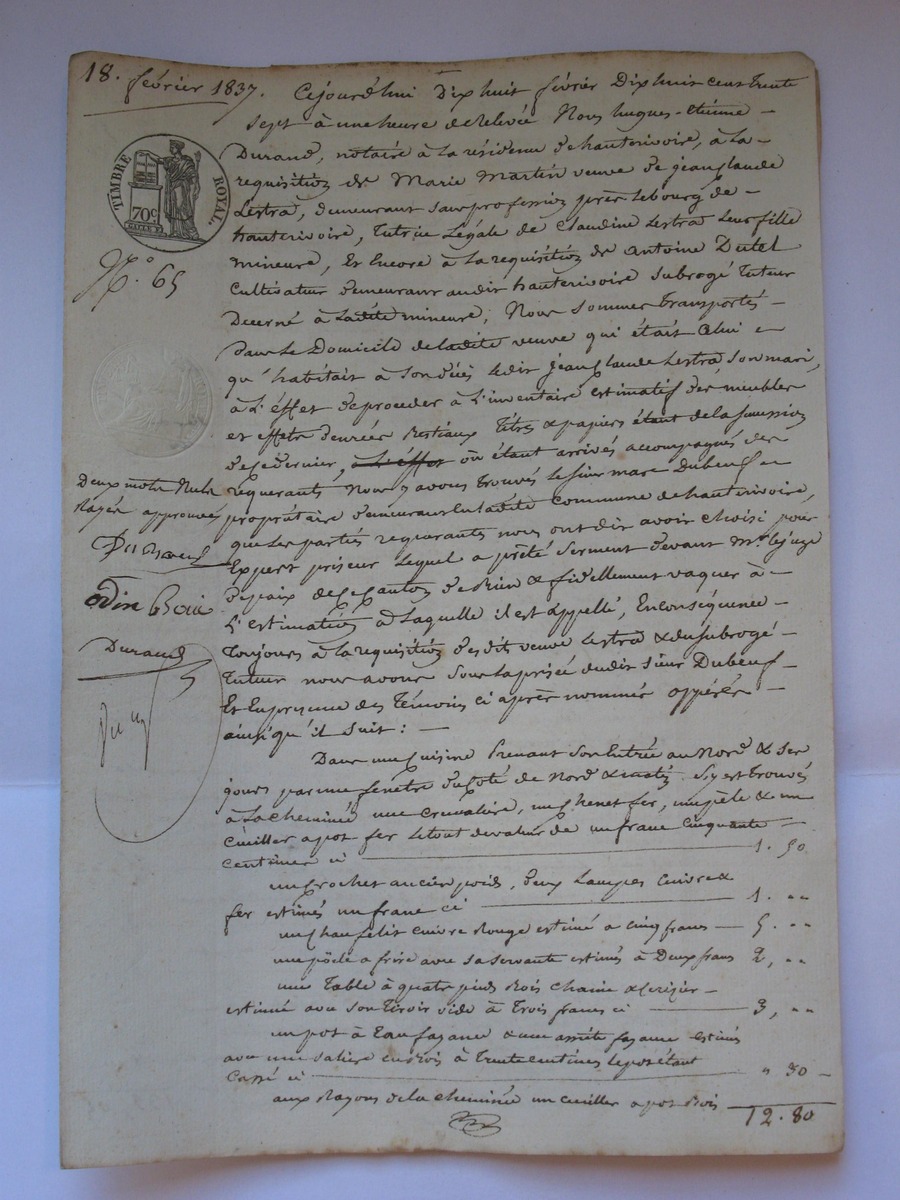 18. février 1837.
Cejourd'hui Dix huit février Dix huit cent trente
sept à une heure de relevée Nous hugues-étienne
Durand, notaire à la résidence d'hauterivoire, à la
requisition de Marie Martin veuve de jean Claude
Lestra, demeurant sans profession près le bourg de
hauterivoire, Tutrice Légale de Claudine Lestra leur fille
mineure, Et Encore à la requisition de Antoine Dutel
Cultivateur demeurant audit hauterivoire subrogé Tuteur
Decerné à ladite mineure; Nous sommes transportés
dans Le Domicile de ladite veuve qui était celui
qu'habitait à son décès ledit jean Claude Lestra son mari,
à L'éffet de proceder à L'inventaire estimatif des meubles
et effets denrées Bestiaux Titres & papiers étant de la succession
de ce dernier, à L'éffet où étant arrivés accompagnés des
requerants Nous y avons trouvés le sieur marc Dubeuf
propriétaire demeurant en ladite commune de hauterivoire,
que les parties requerants nous ont dit avoir choisi pour
Expert priseur Lequel a prêté serment devant Mr. le juge
de paix de ce canton de bien & fidellement vaquer à
L'estimation à laquelle il est appellé, En conséquence
Toujours à la requisition desdit veuve Lestra & du subrogé
Tuteur nous avons sous la prisée dudit sieur Dubeuf
Et En presence des Témoins ci après nommés opperés
ainsi qu'il suit:
TIMBRE ROYAL
70c
N.° 65
Deux mots Nuls
Rayés approuvés
Dubeuf
Odin
Durand
Dans une Cuisine Prenant son Entrée au Nord & ses
jours par une fenêtre du Coté de Nord & matin. S'y est trouvés
à La cheminée une cremaliere, un chenet fer, une pèle & un
Cuiller a pot fer Le tout de valeur de un franc Cinquante
Centimes ci 1. 50
un Crochet ancien poids, deux Lampes Cuivre &
fer estimés un franc ci 1. "
un Chaufelit cuivre Rouge estimé a Cinq francs 5. "
une pöele a frire avec sa servante estimés à Deux francs 2, "
une Table à quatre pieds Bois Chaine & Cerisier
estimée avec son Tiroir vide à Trois francs ci 3, "
un pot à Eau fayance & une assiette fayance estimés
avec une saliere en Bois à Trente centimes le pot étant
Cassé ci " 30
aux Rayons de la cheminée un cuiller a pot Bois
12. 80